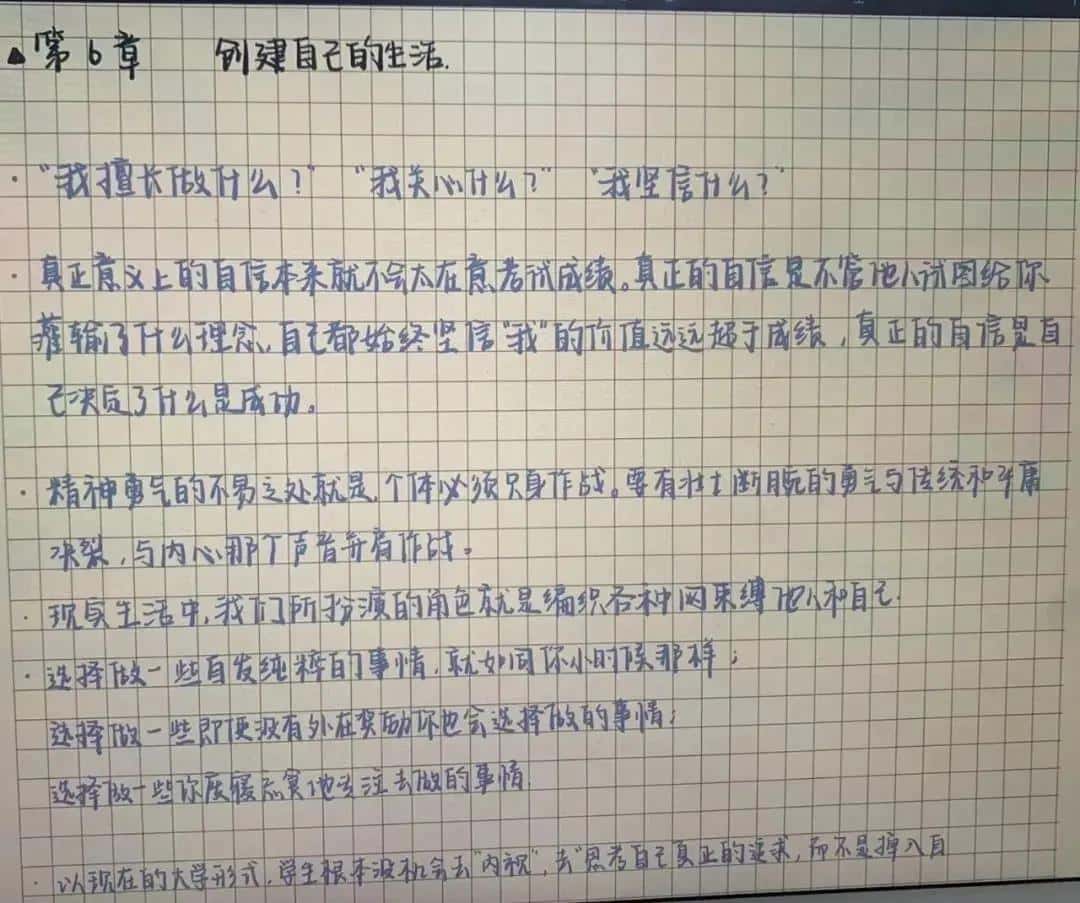 ▲第6章 创建自己的生活.
· “我擅长做什么?” “我关心什么?” “我坚信什么?”
· 真正意义上的自信本来就不会太在意考试成绩。真正的自信是不管他人试图给你
灌输了什么理念,自己都始终坚信“我”的价值远远超于成绩,真正的自信是自
己决定了什么是成功。
· 精神勇气的不易之处就是,个体必须只身作战。要有壮士断腕的勇气与传统和平庸
决裂,与内心那个声音并肩作战。
· 现实生活中,我们所扮演的角色就是编织各种网束缚他人和自己.
· 选择做一些自发纯粹的事情,就如同你小时候那样;
选择做一些即使没有外在奖励你也会选择做的事情;
选择做一些你废寝忘食地专注去做的事情.
· 以现在的大学形式,学生根本没机会去“内视”,去“思考自己真正的追求,而不是掉入自